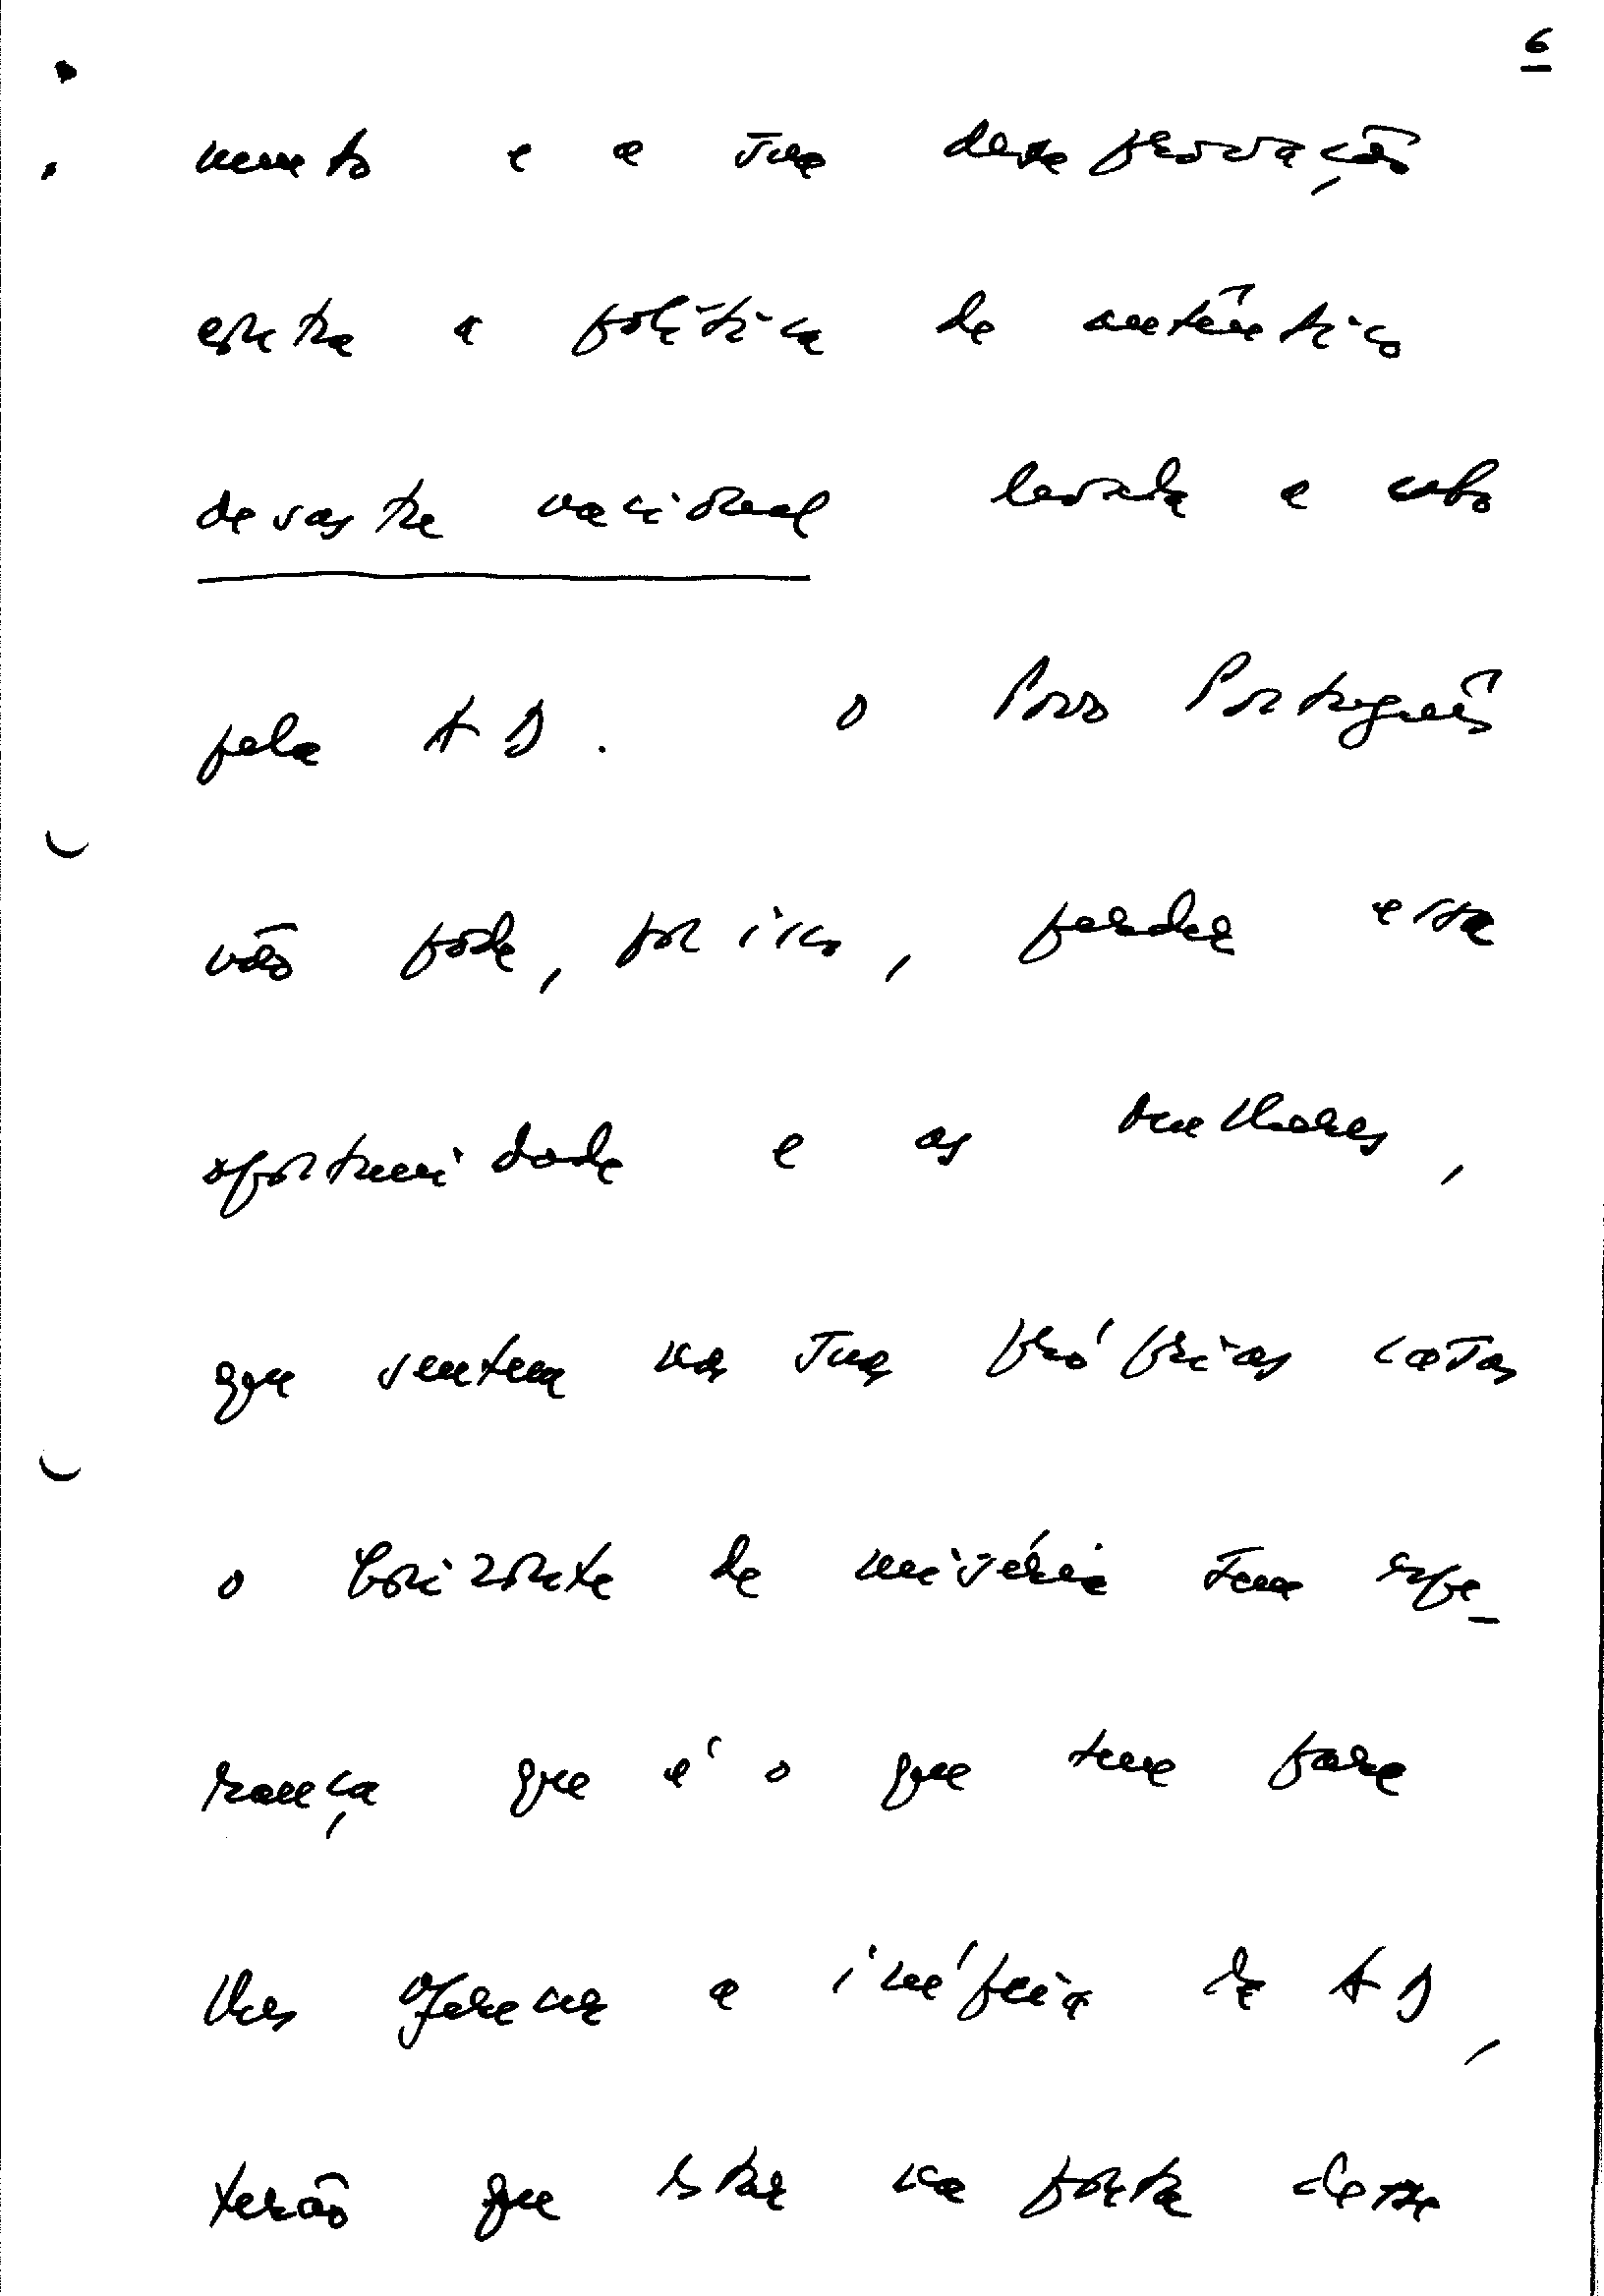 6
mento e a sua desaprovação
contra a política de autêntico
desastre nacional levada a cabo
pela AD. o Povo Português
não pode, por isso, perder esta
oportunidade e as mulheres,
que sentem nas suas próprias casas
o horizonte de miséria sem espe_
rança que é o que tem para
lhes oferecer a inépcia da AD,
terão que estar na frente deste